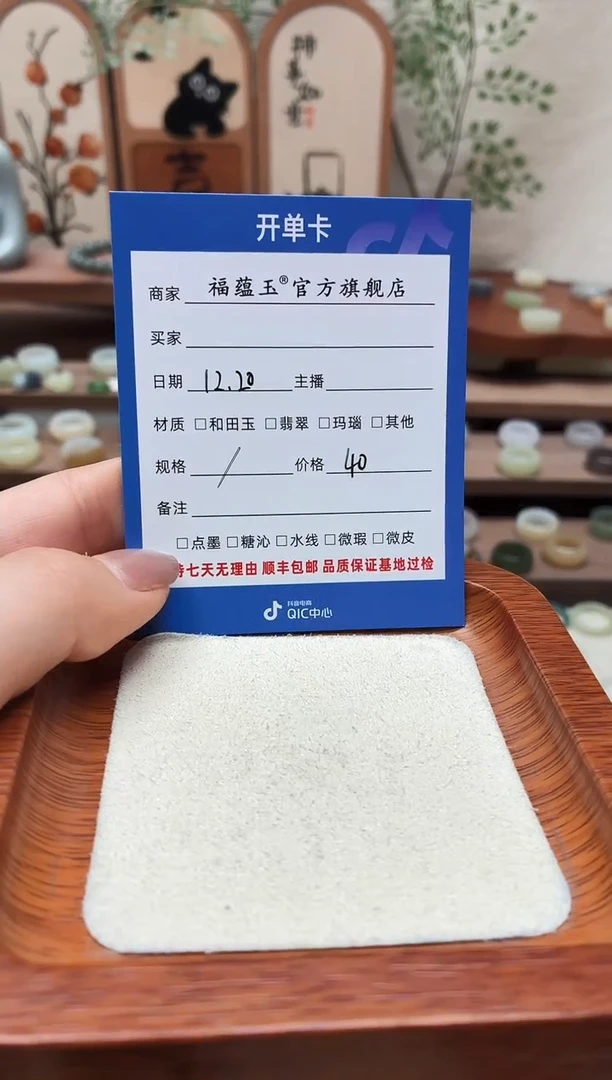 开单卡
商家 福蕴玉®官方旗舰店
买家
日期 12.20 主播
材质 □和田玉 □翡翠 □玛瑙 □其他
规格 / 价格 40
备注
□点墨 □糖沁 □水线 □微瑕 □微皮
七天无理由 顺丰包邮 品质保证基地过检
抖音电商
QIC中心